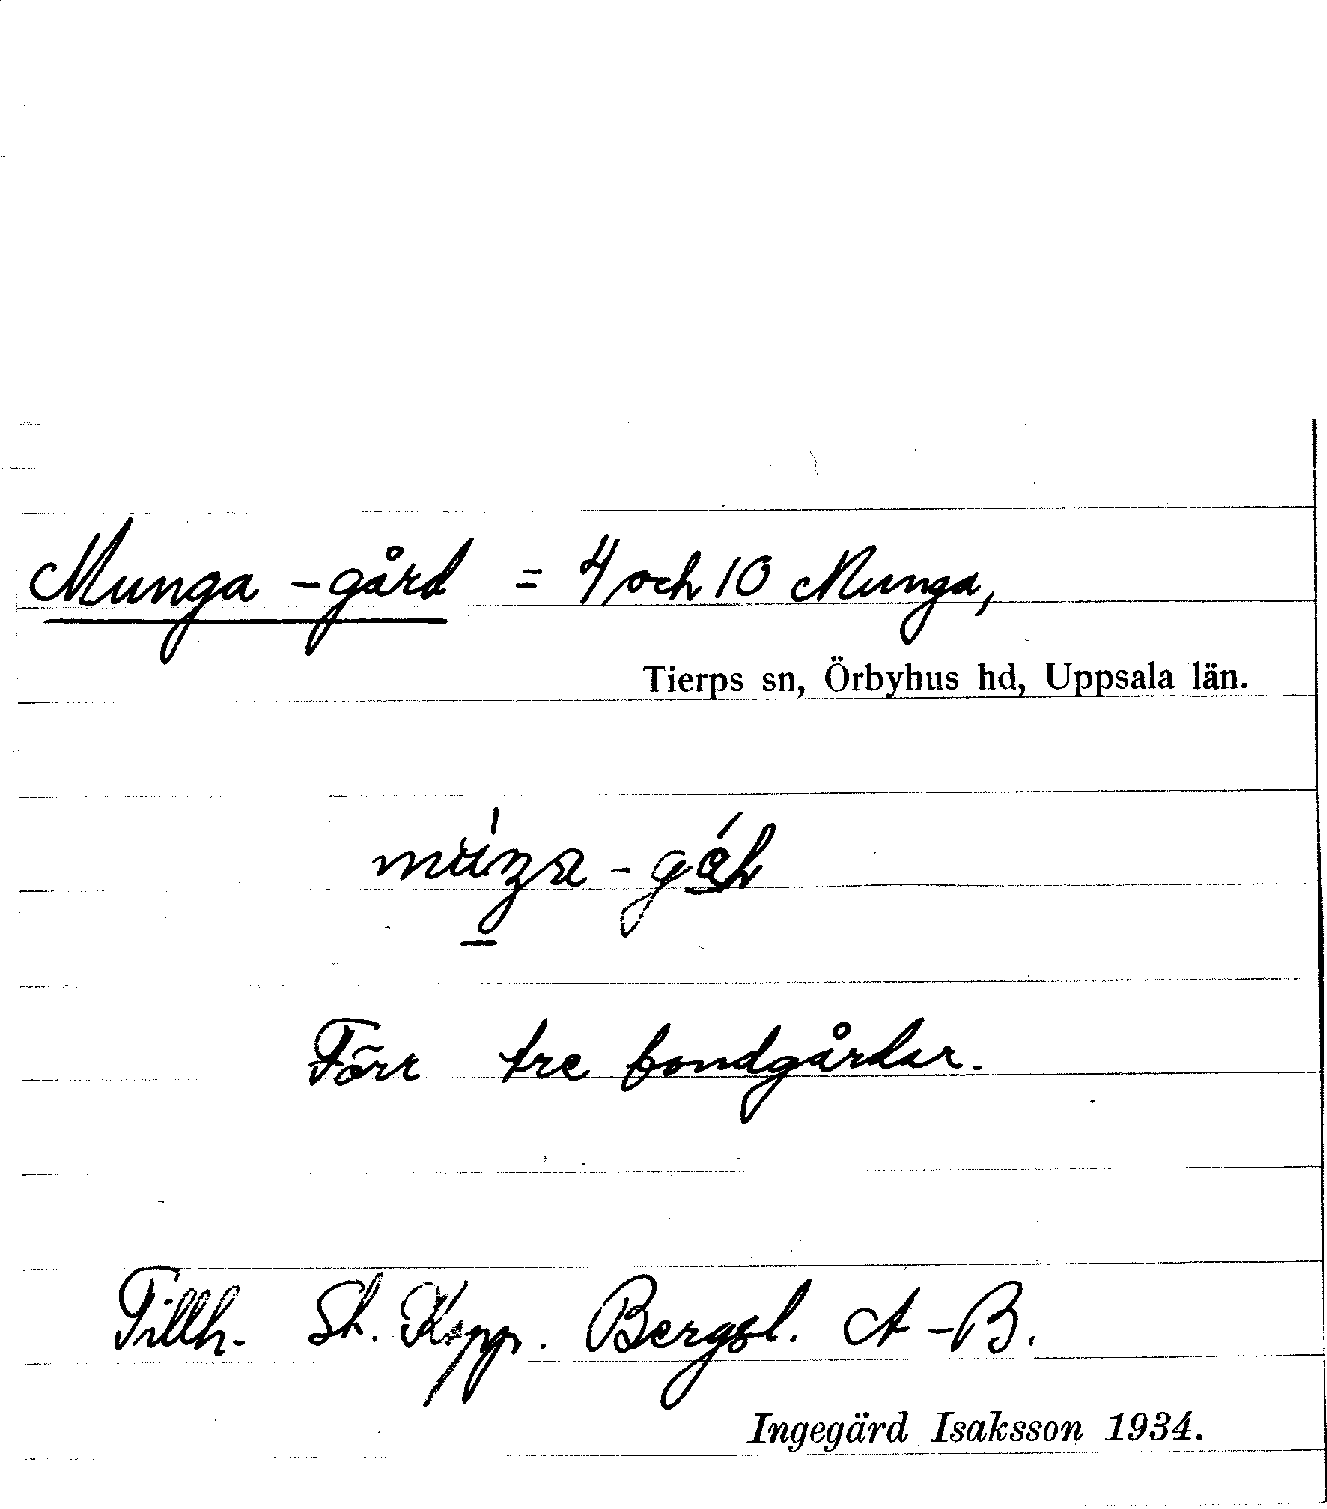 Munga-gård = 4 och 10 Munga,
Tierps sn, Örbyhus hd, Uppsala län.
Förr tre bondgårdar.
Tillh. St. Kopp. Bergsl. A-B.
Ingegärd Isaksson 1934.